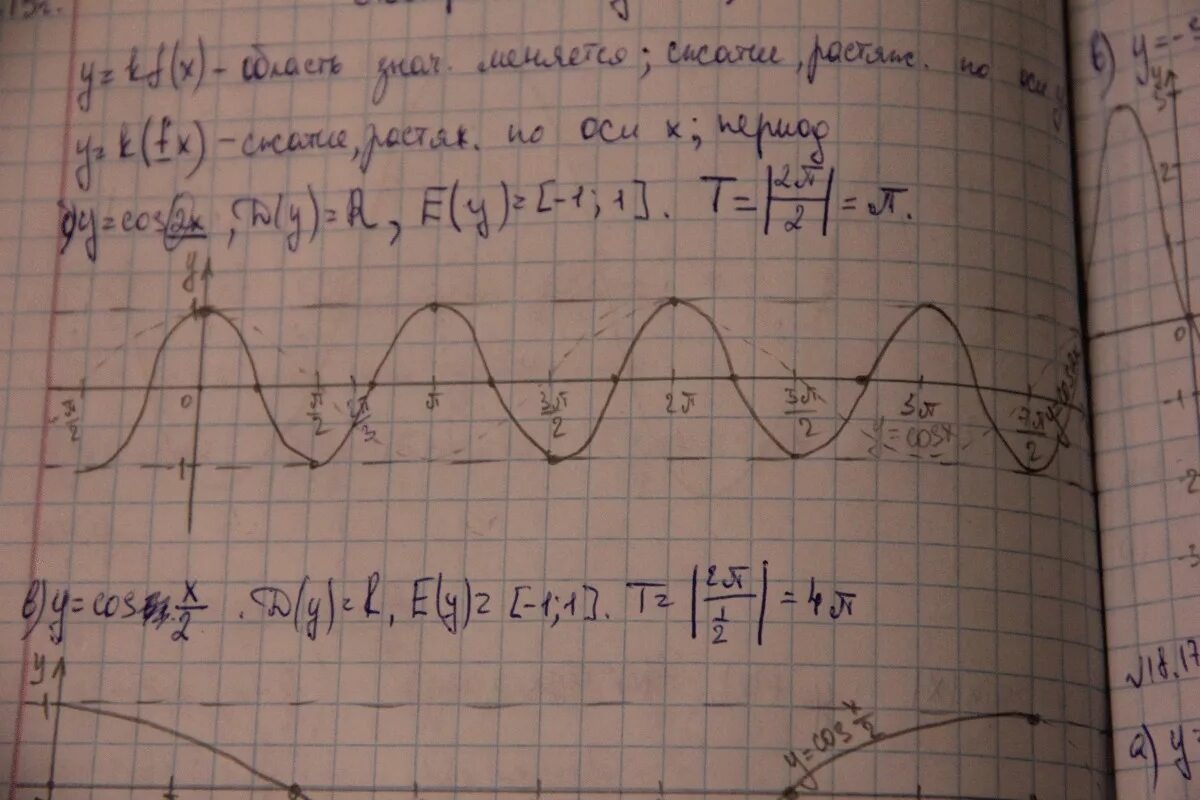 y = kf(x) - область знач. меняется; сжатие, растяж. по оси y
y = k(fx) - сжатие, растяж. по оси x; период
y = cos 2x, D(y) = R, E(y) = [-1; 1]. T = |2π/2| = π.
y
1
-π/2 0 π/2 2π/3 π 3π/2 2π 3π/2 3π 7π/2
y = cos x
-1
в) y = cos x/2. D(y) = R, E(y) = [-1; 1]. T = |2π/(1/2)| = 4π
y
1
y = cos x/2
в) y = -
y
2
0
-1
-2
-3
√18.17
а) y =